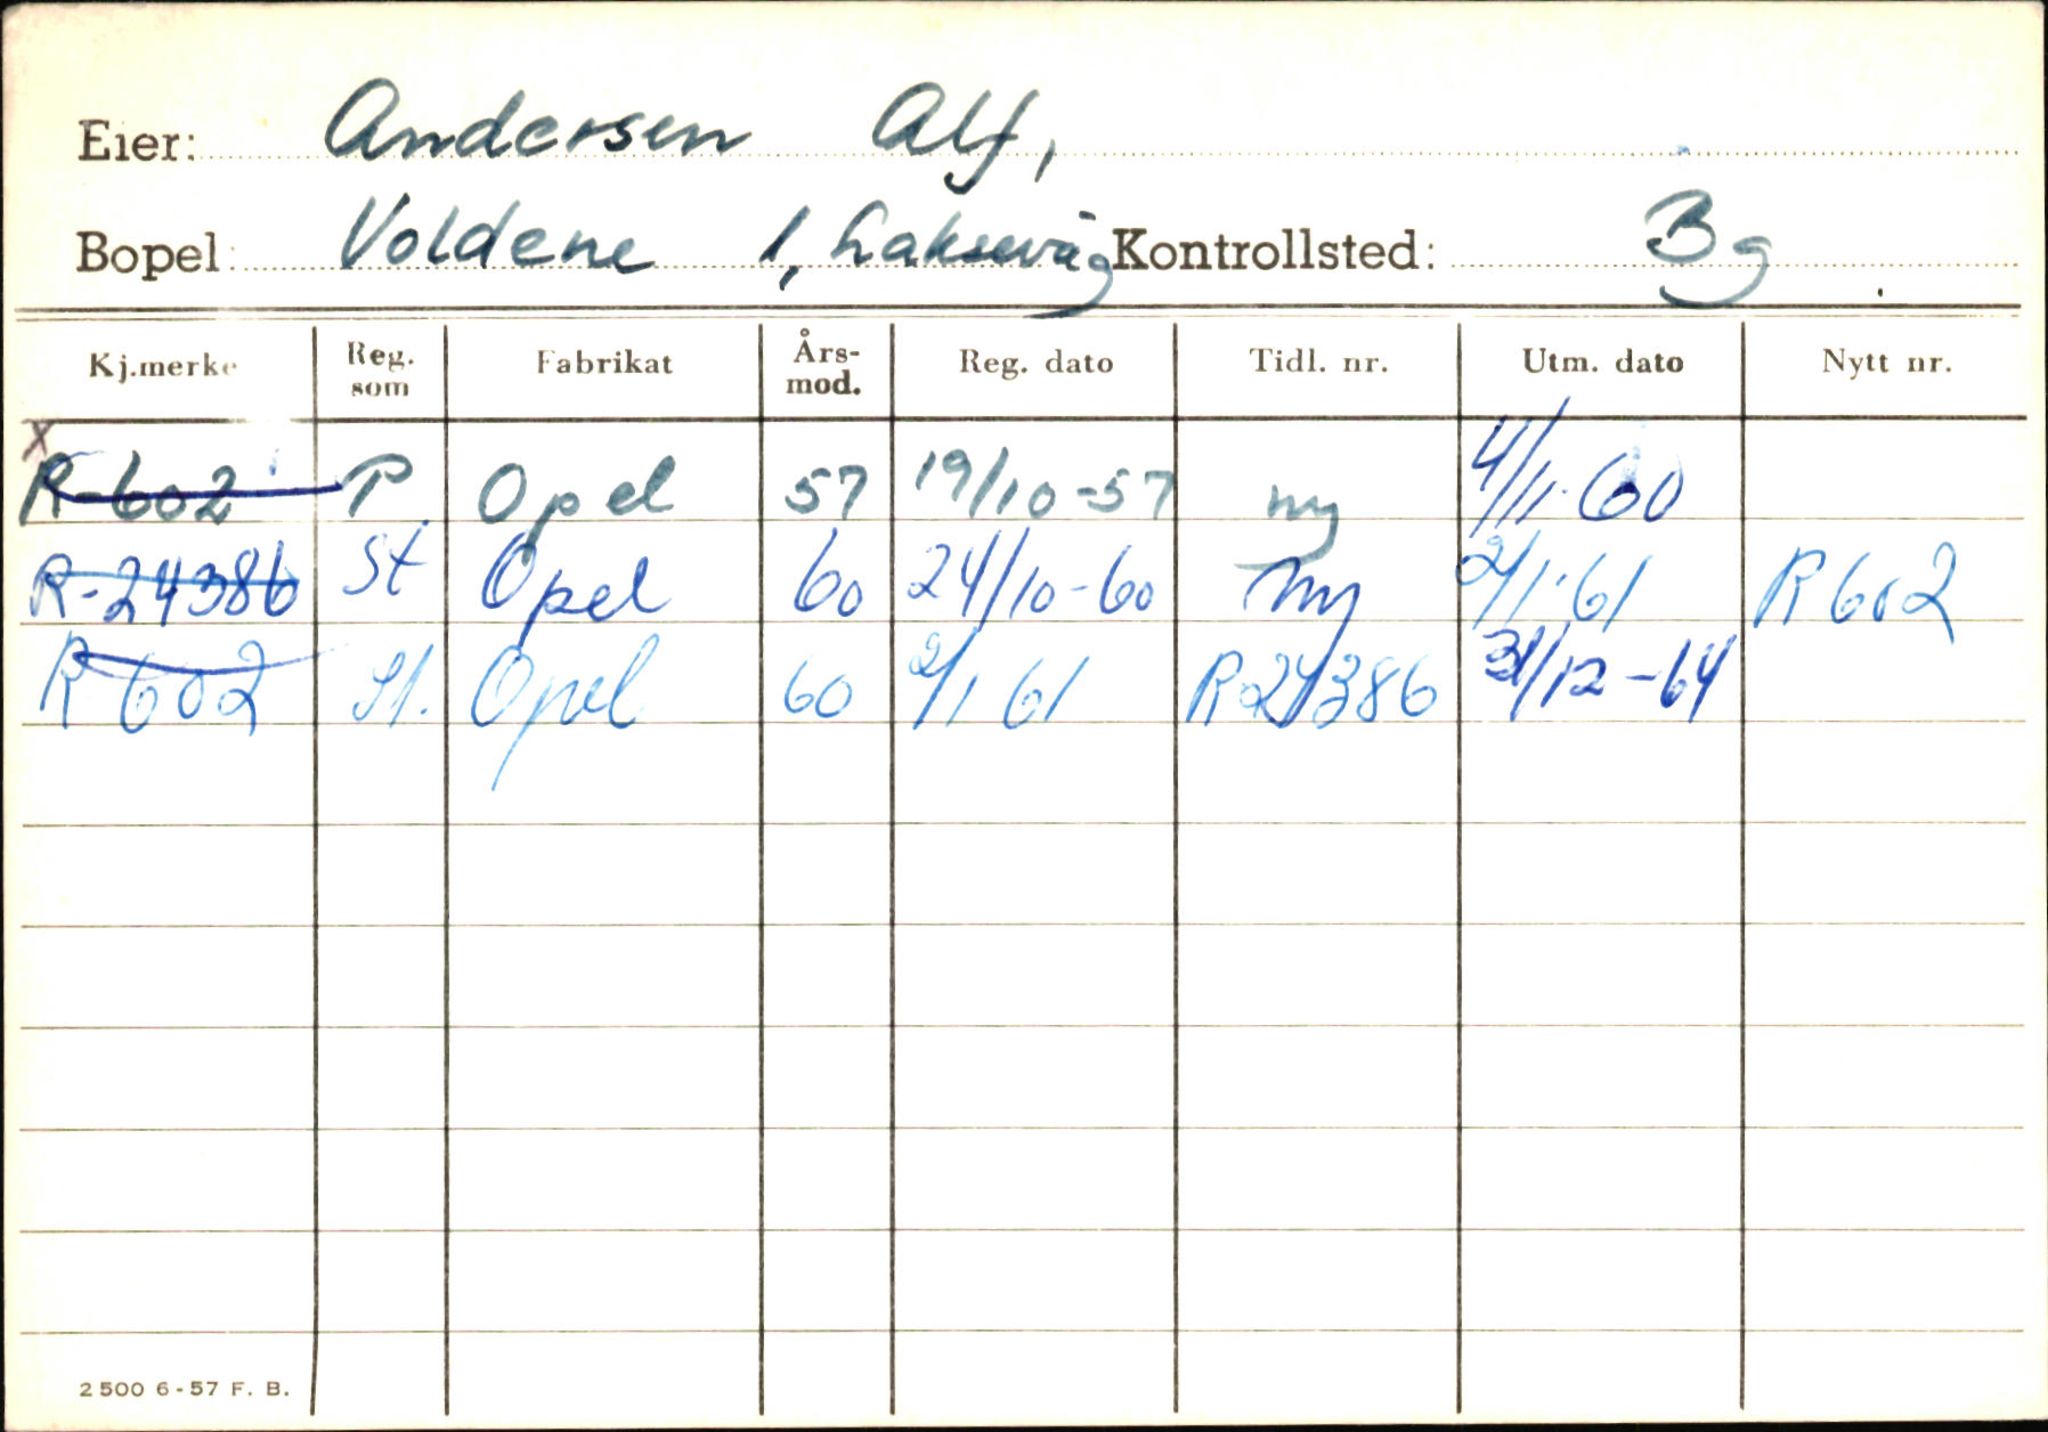 Eier: Andersen Alf,
Bopel: Voldene 1, Laksevåg Kontrollsted: Bg
Kj.merke Reg. som Fabrikat Års-mod. Reg. dato Tidl. nr. Utm. dato Nytt nr.
x
R-602 P Opel 57 19/10-57 ny 4/11-60
R-24386 St Opel 60 24/10-60 ny 2/1-61 R602
R602 St. Opel 60 2/1 61 R24386 31/12-64
2500 6-57 F. B.